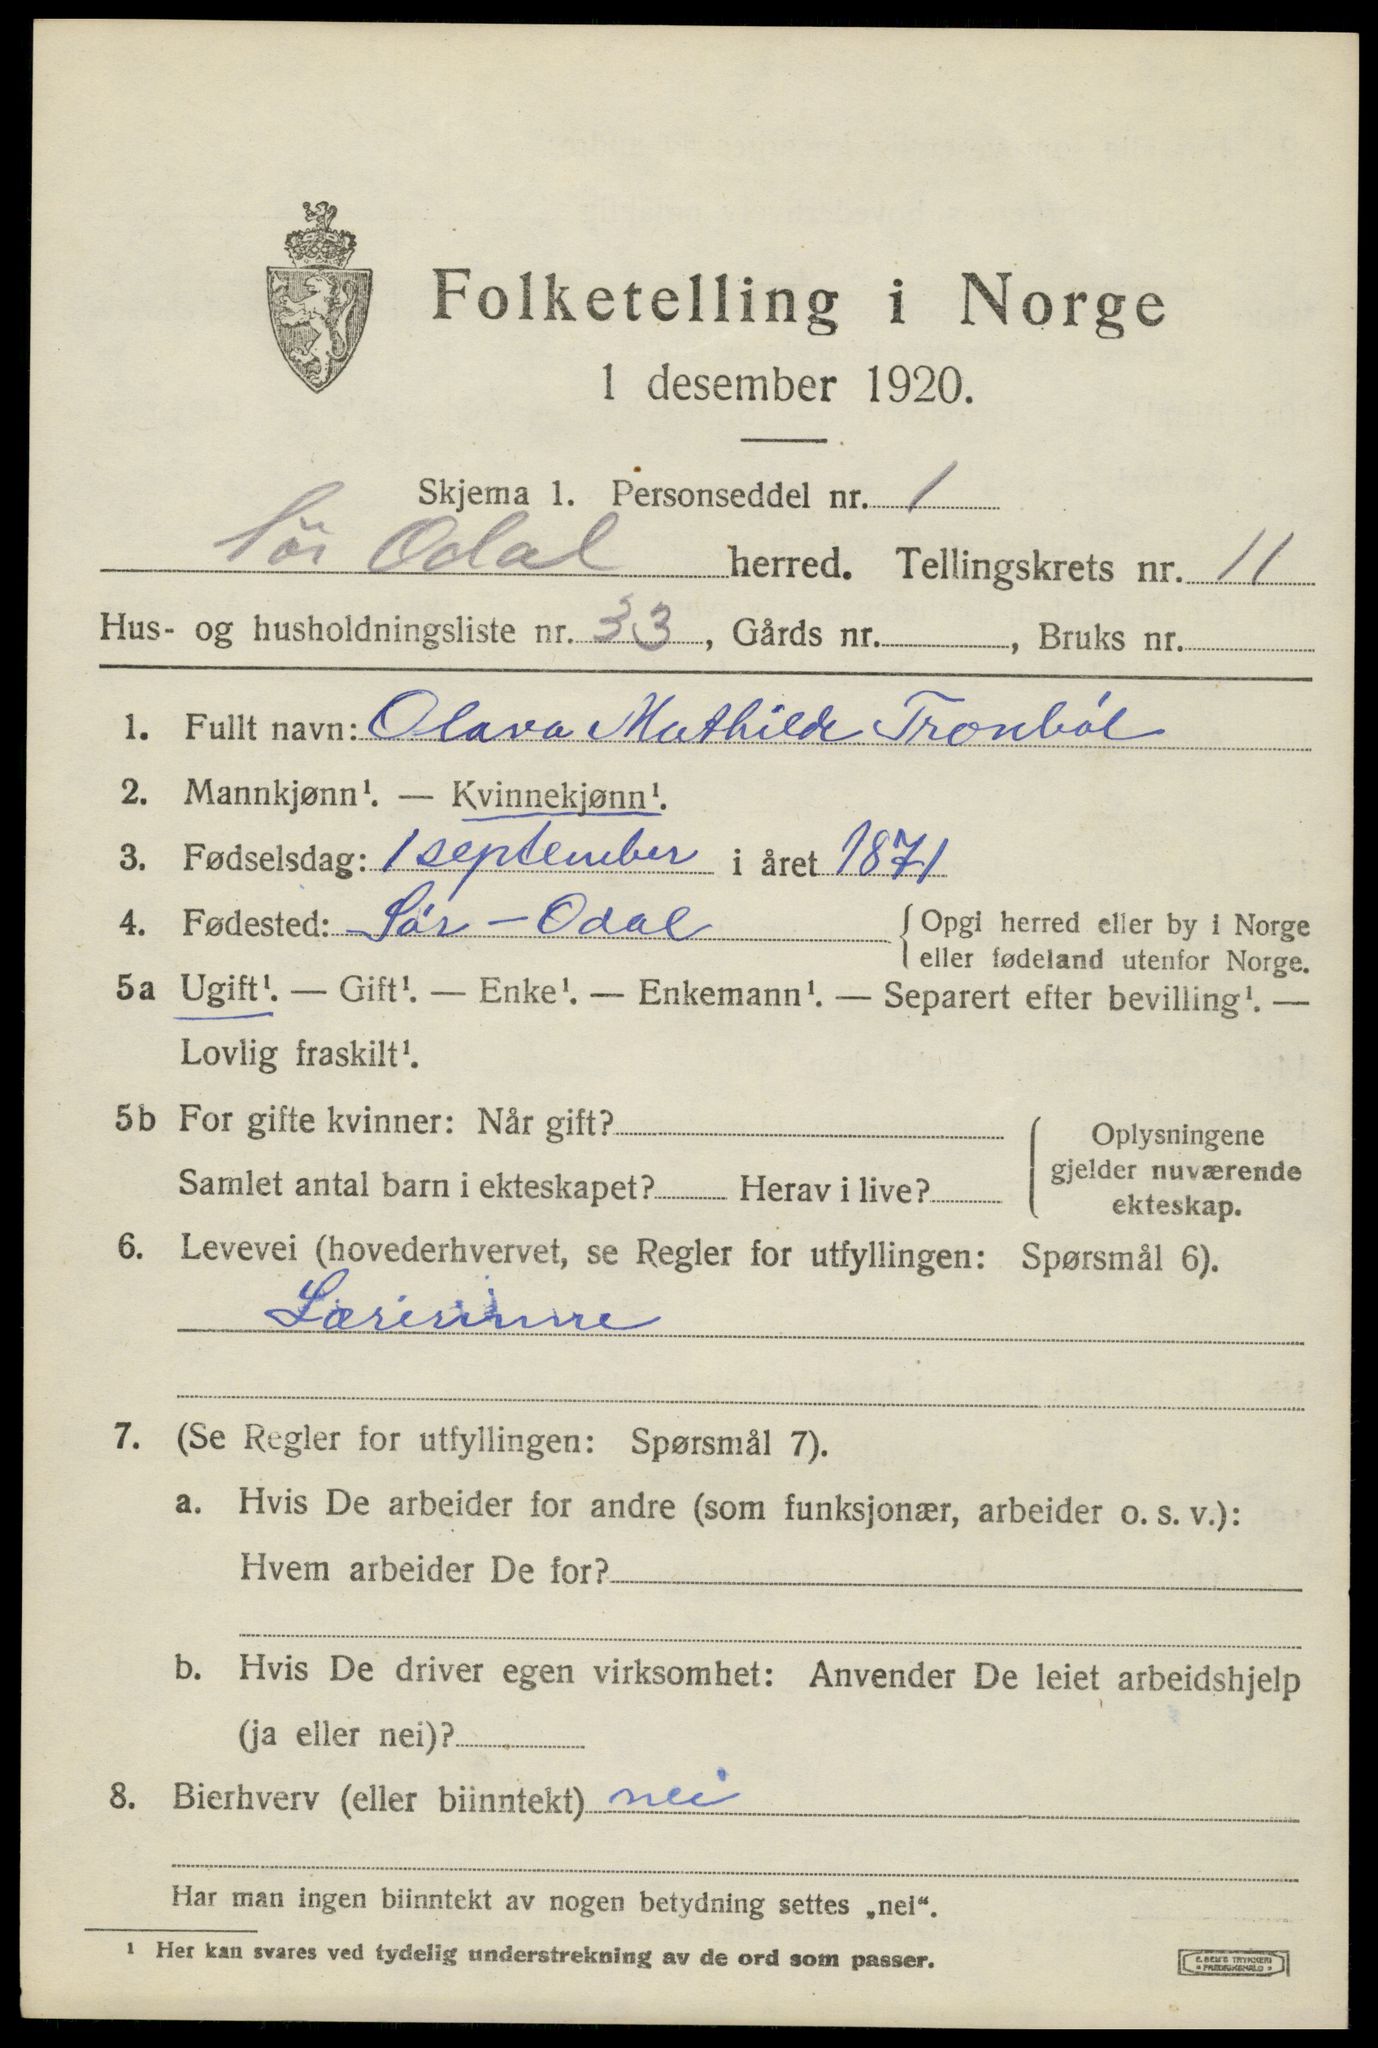 Folketelling i Norge
1 desember 1920.
Skjema 1. Personseddel nr. 1
Sör Odal herred. Tellingskrets nr. 11
Hus- og husholdningsliste nr. 33, Gårds nr. , Bruks nr.
1. Fullt navn: Olava Mathilde Tronbøl
2. Mannkjønn¹. — Kvinnekjønn¹.
3. Fødselsdag: 1 september i året 1871
4. Fødested: Sør - Odal { Opgi herred eller by i Norge
eller fødeland utenfor Norge.
5a Ugift¹. — Gift¹. — Enke¹. — Enkemann¹. — Separert efter bevilling¹. —
Lovlig fraskilt¹.
5b For gifte kvinner: Når gift?
Samlet antal barn i ekteskapet? Herav i live?
Oplysningene
gjelder nuværende
ekteskap.
6. Levevei (hovederhvervet, se Regler for utfyllingen: Spørsmål 6).
Lærerinne
7. (Se Regler for utfyllingen: Spørsmål 7).
a. Hvis De arbeider for andre (som funksjonær, arbeider o. s. v.):
Hvem arbeider De for?
b. Hvis De driver egen virksomhet: Anvender De leiet arbeidshjelp
(ja eller nei)?
8. Bierhverv (eller biinntekt) nei
Har man ingen biinntekt av nogen betydning settes „nei“.
¹ Her kan svares ved tydelig understrekning av de ord som passer.
E. SEM'S TRYKKERI
FREDRIKSHALD